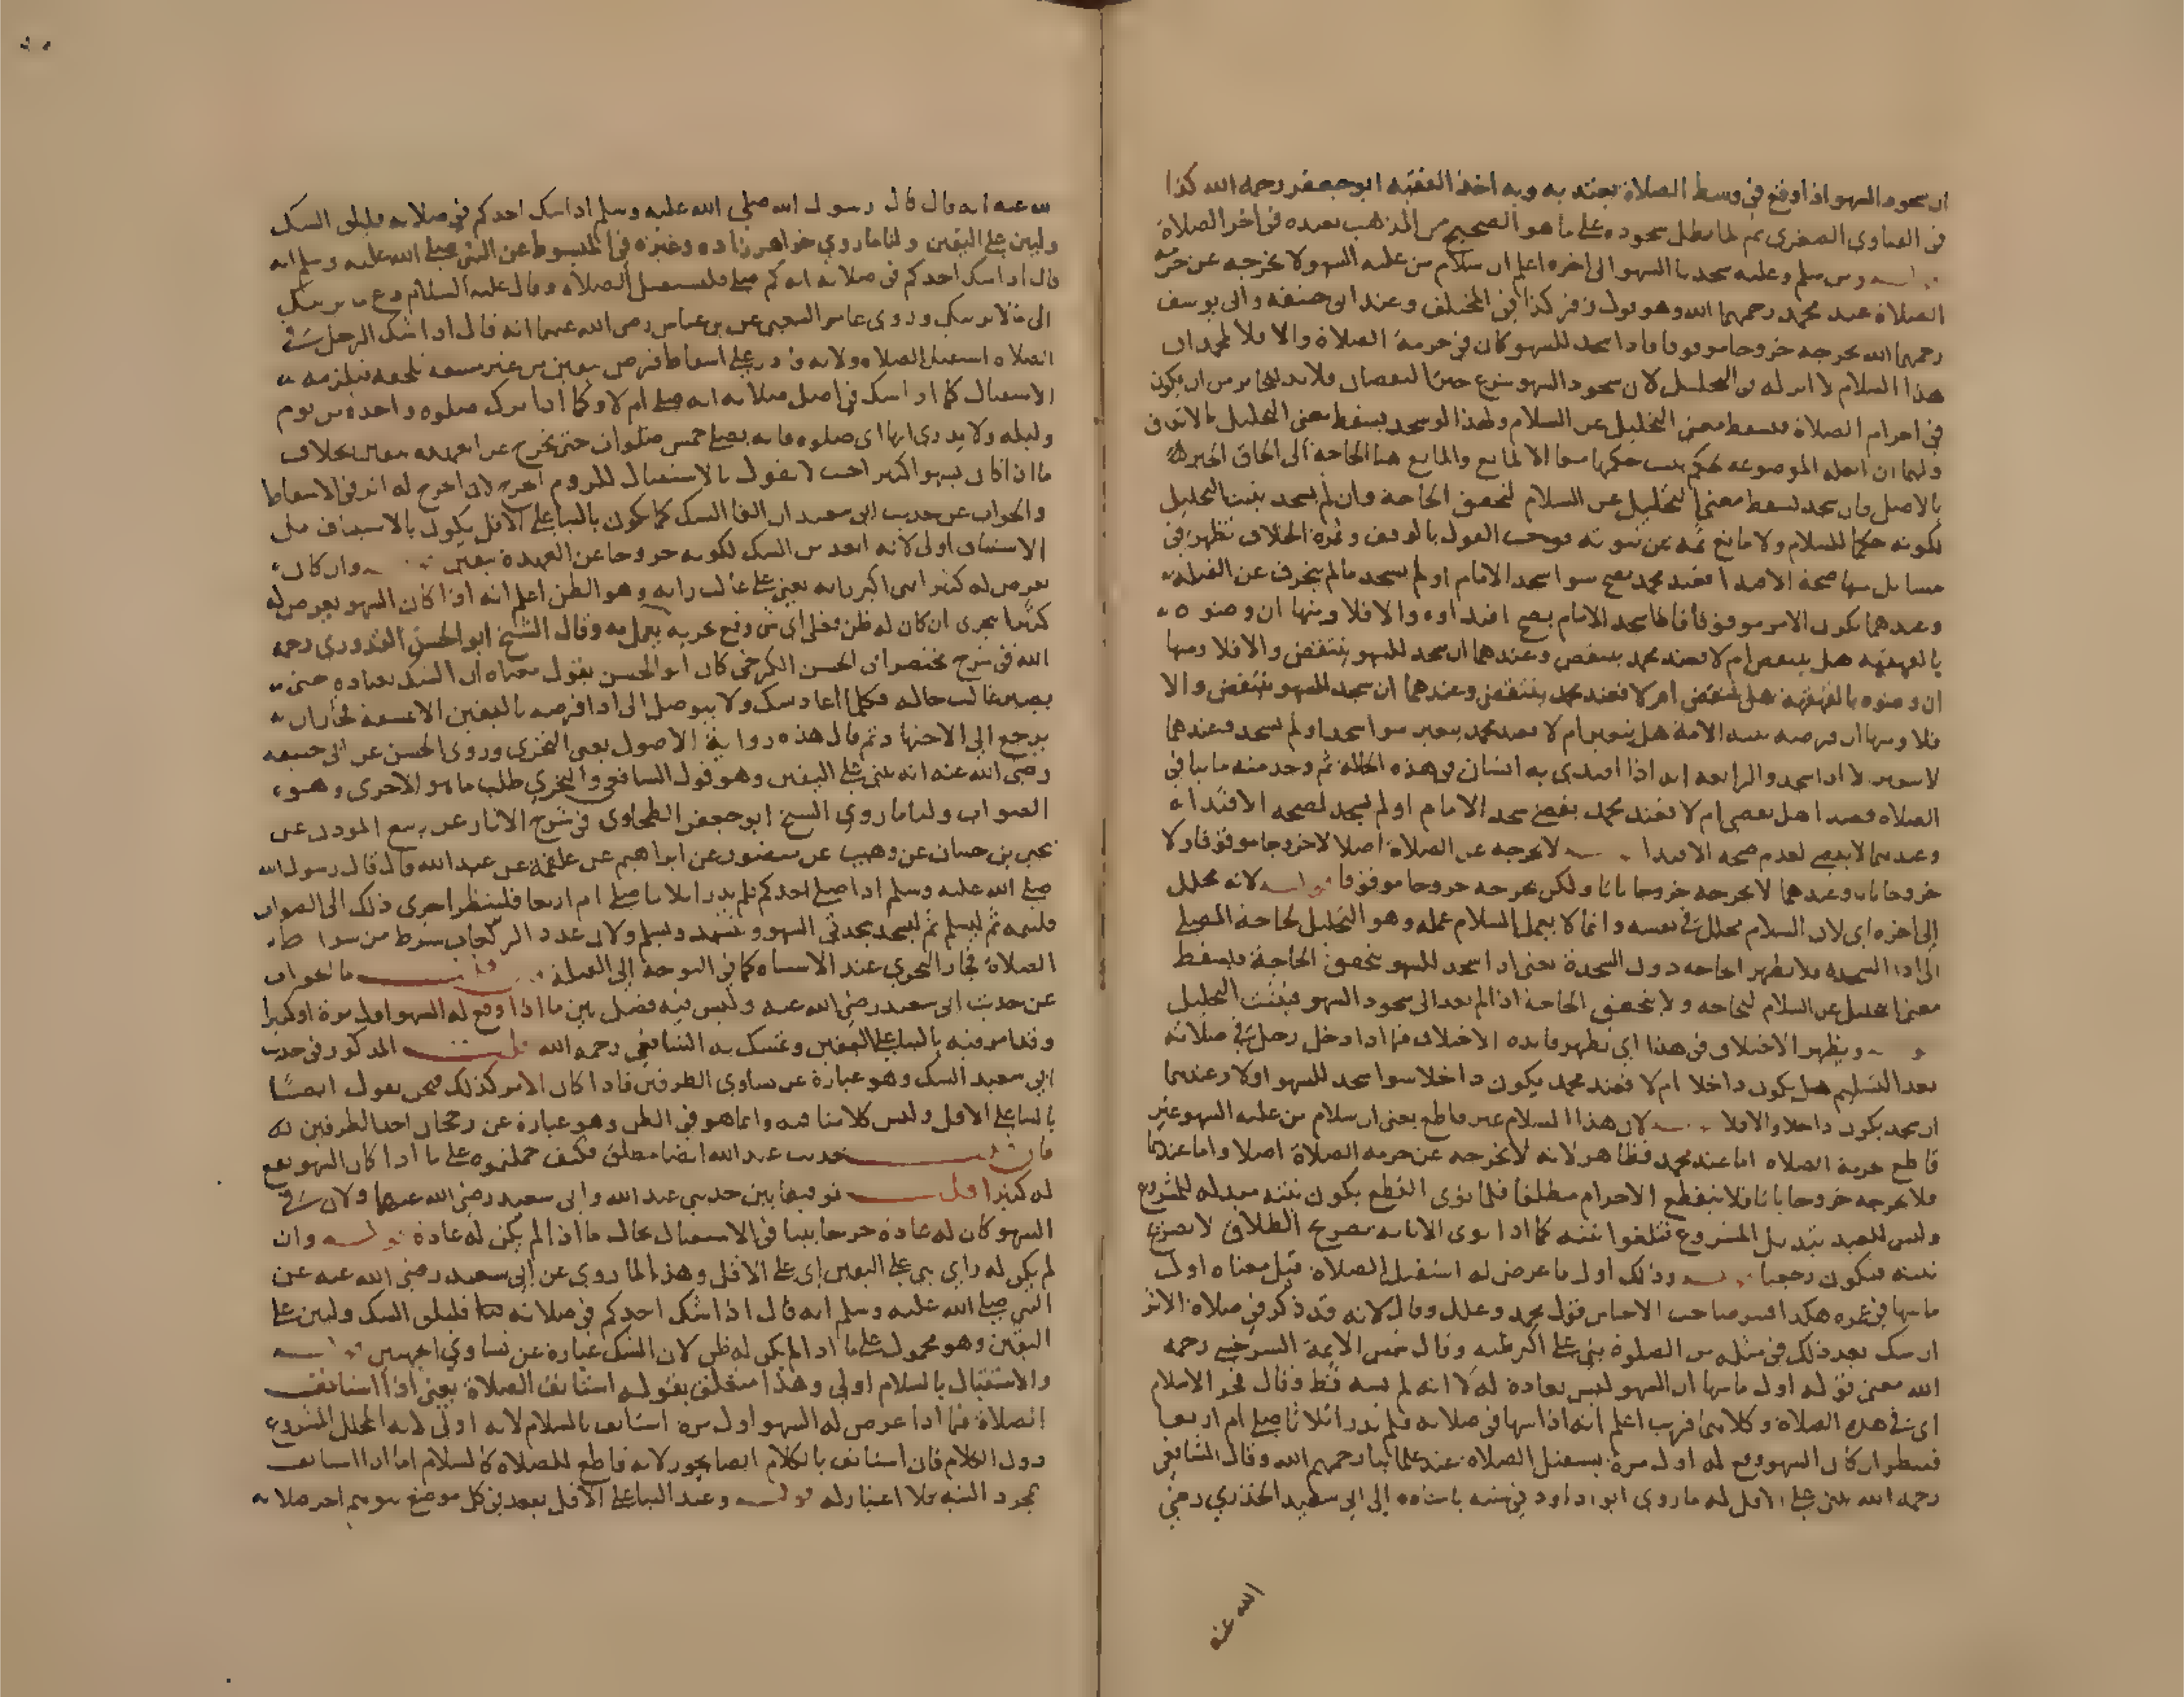 ان سجود السهو اذا وقع في وسط الصلاة يعتد به وبه اخذ الفقيه ابو جعفر رحمه الله كذا
في الفتاوي الصغرى ثم لما بطل سجوده على ما هو الصحيح من المذهب يعيده في اخر الصلاة
ومن سلم وعليه سجدتا السهو الى اخره اعلم ان سلام من عليه السهو لا يخرجه عن حرمة
الصلاة عند محمد رحمهما الله وهو قول زفر كذا في المختلف وعند ابي حنيفة وابي يوسف
رحمهما الله يخرجه خروجا موقوفا فاذا سجد للسهو كان في حرمة الصلاة والا فلا لمحمد ان
هذا السلام لا اثر له في التحليل لان سجود السهو شرع جبرا لنقصان فلا بد للجابر من ان يكون
في احرام الصلاة فسقط معنى التحليل عن السلام ولهذا لو سجد يسقط معنى التحليل بالاتفاق
ولهما ان العلة الموضوعة لحكم يثبت حكمها بها الا لمانع والمانع هنا الحاجة الى الحاق الجابر
بالاصل فان سجد يسقط معنى التحليل عن السلام لتحقق الحاجة وان لم يسجد يثبت التحليل
لكونه حكما للسلام ولا مانع ثمه عن ثبوته فوجب القول بالوقف وثمرة الخلاف تظهر في
مسائل منها صحة الاقتدا فعند محمد يصح سوا سجد الامام او لم يسجد ما لم ينحرف عن القبلة
وعندهما يكون الامر موقوفا فاذا سجد الامام يصح اقتداوه والا فلا ومنها ان وضوه
بالقهقهة هل ينتقض ام لا فعند محمد ينتقض وعندهما ان سجد للسهو ينتقض والا فلا ومنها
ان وضوه بالقهقهة هل ينتقض ام لا فعند محمد ينتقض وعندهما ان سجد للسهو ينتقض والا
فلا ومنها ان فرضه بنية الاقامة هل يتغير ام لا فعند محمد يتغير سوا سجد او لم يسجد وعندهما
لا يتغير الا اذا سجد والرابعة انه اذا اقتدى به انسان في هذه الحالة ثم وجد منه ما ينافي
الصلاة قصدا هل يقضي ام لا فعند محمد يقضي سجد الامام او لم يسجد لصحة الاقتداء
وعندهما لا يقضي لعدم صحة الاقتدا لا يخرجه عن الصلاة اصلا لا خروجا موقوفا ولا
خروجا باتا وعندهما لا يخرجه خروجا باتا ولكن يخرجه خروجا موقوفا قوله لانه محلل
الى اخره اي لان السلام محلل في نفسه وانما لا يعمل السلام عمله وهو التحليل لحاجة المصلي
الى ادا السجدة فلا يظهر الحاجة دون السجدة يعني اذا سجد للسهو يتحقق الحاجة فيسقط
معنى التحليل عن السلام للحاجة ولا يتحقق الحاجة اذا لم يعد الى سجود السهو فيثبت التحليل
ويظهر الاختلاف في هذا اي تظهر فائدة الاختلاف فيما اذا دخل رجل في صلاته
بعد التسليم هل يكون داخلا ام لا فعند محمد يكون داخلا سوا سجد للسهو او لا وعندهما
ان سجد يكون داخلا والا فلا لان هذا السلام غير قاطع يعني ان سلام من عليه السهو غير
قاطع حرمة الصلاه اما عند محمد فظاهر لانه لا يخرجه عن حرمة الصلاة اصلا واما عندهما
فلا يخرجه خروجا باتا فلا ينقطع الاحرام مطلقا فلما نوى القطع يكون نيته مبدله للمشروع
وليس للعبد تبديل المشروع فتلغوا نيته كما اذا نوى الابانة بصريح الطلاق لا يصح
نيته فيكون رجعيا قوله وذلك اول ما عرض له استقبل الصلاة قيل معناه اول
ما سها في عمره هكذا فسر صاحب الاجناس قول محمد وعلل وقال لانه قد ذكر في صلاة الاثر
ان شك بعد ذلك في مثله من الصلوة بنى على اكبر ظنه وقال شمس الائمة السرخسي رحمه
الله معنى قوله اول ما سها ان السهو ليس بعادة له لا انه لم يسه قط وقال فخر الاسلام
اي في هذه الصلاة وكلاهما قريب اعلم انه اذا سها في صلاته فلم يدر اثلاثا صلى ام اربعا
فينظر ان كان السهو وقع له اول مرة يستقبل الصلاه عند علمائنا رحمهم الله وقال الشافعي
رحمه الله يبني على الاقل له ما روى ابو داود في سننه باسناده الى ابي سعيد الخدري رضي
الله عنه
الله عنه انه قال قال رسول الله صلى الله عليه وسلم اذا شك احدكم في صلاته فليلق الشك
وليبن على اليقين ولنا ما روى خواهر زاده وغيره في المبسوط عن النبي صلى الله عليه وسلم انه
قال اذا شك احدكم في صلاته انه كم صلى فليستقبل الصلاة وقال عليه السلام دع ما يريبك
الى ما لا يريبك وروى عامر الشعبي عن بن عباس رضي الله عنهما انه قال اذا شك الرجل في
الصلاه استقبل الصلاه ولانه قادر على اسقاط فرض بيقين من غير مشقة تلحقه فيلزمه
الاستقبال كما اذا شك في اصل صلاته انه صلى ام لا وكما اذا ترك صلوة واحدة من يوم
وليلة ولا يدري انها اي صلوة فانه يصلي خمس صلوات حتى يخرج عن العهدة بيقين بخلاف
ما اذا كان يسهو اكثر حيث لا يقول بالاستقبال للزوم الحرج لان الحرج له اثر في الاسقاط
والجواب عن حديث ابي سعيد ان القا الشك كما يكون بالبنا على الاقل يكون بالاستيناف بل
الاستيناف اولى لانه ابعد من الشك لكونه خروجا عن العهدة بيقين وان كان
يعرض له كثيرا بنى اكبر رايه يعني على غالب رايه وهو الظن اعلم انه اذا كان السهو يعرض له
كثيرا يتحرى ان كان له ظن فعلى اي شي وقع تحريه يعمل به وقال الشيخ ابو الحسن القدوري رحمه
الله في شرح مختصر ابي الحسن الكرخي كان ابو الحسن يقول معناه ان الشك بعاده حتى
يصير غالب حاله فكلما اعاد شك ولا يتوصل الى ادا فرضه باليقين الا بمشقة فجاز ان
يرجع الى الاجتهاد ثم قال هذه رواية الاصول يعني التحري وروى الحسن عن ابي حنيفة
رضي الله عنه انه يبني على اليقين وهو قول الشافعي والتحري طلب ما هو الاحرى وهو
الصواب ولنا ما روى الشيخ ابو جعفر الطحاوي في شرح الاثار عن ربيع المؤذن عن
يحيى بن حسان عن وهيب عن منصور عن ابراهيم عن علقمة عن عبد الله قال قال رسول الله
صلى الله عليه وسلم اذا صلى احدكم فلم يدر اثلاثا صلى ام اربعا فلينظر احرى ذلك الى الصواب
فليتمه ثم ليسلم ثم ليسجد سجدتي السهو ويتشهد ويسلم ولان عدد الركعات شرط من شرائط
الصلاة فجاز التحري عند الاشتباه كما في التوجه الى القبلة فان قلت ما الجواب
عن حديث ابي سعيد رضي الله عنه وليس فيه فصل بين ما اذا وقع له السهو اول مرة او كثيرا
وقد امر فيه بالبنا على اليقين وتمسك به الشافعي رحمه الله قلت المذكور في حديث
ابي سعيد الشك وهو عبارة عن تساوي الطرفين فاذا كان الامر كذلك فنحن نقول ايضا
بالبنا على الاقل وليس كلامنا فيه وانما هو في الظن وهو عبارة عن رجحان احد الطرفين
فان قلت حديث عبد الله ايضا مطلق فكيف حملتموه على ما اذا كان السهو يقع
له كثيرا قلت توفيقا بين حديثي عبد الله وابي سعيد رضي الله عنهما ولان في
السهو كان له عادة حرجا بينا في الاستقبال بخلاف ما اذا لم يكن له عادة قوله وان
لم يكن له راي بنى على اليقين اي على الاقل وهذا لما روي عن ابي سعيد رضي الله عنه عن
النبي صلى الله عليه وسلم انه قال اذا شك احدكم في صلاته فليلق الشك وليبن على
اليقين وهو محمول على ما اذا لم يكن له ظن لان الشك عبارة عن تساوي الجهتين قوله
والاستقبال بالسلام اولى وهذا متعلق بقوله استانف الصلاة يعني اذا استانف
الصلاة فيما اذا عرض له السهو اول مرة استانف بالسلام لانه اولى لانه المحلل المشروع
دون الكلام فان استانف بالكلام ايضا يجوز لانه قاطع للصلاة كالسلام اما اذا استانف
بمجرد النية فلا اعتبار له قوله وعند البنا على الاقل يقعد في كل موضع يتوهم اخر صلاته